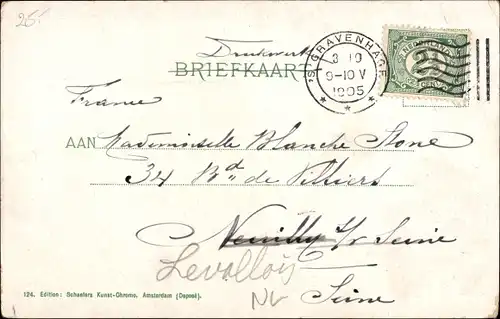 25.-
Drukwerk
'S GRAVENHAGE
3 10
9-10 V
1905
NEDERLAND
BRIEFKAART
France
AAN Mademoiselle Blanche Stone
34 Bd de Villiers
Neuilly s/r Seine
Levallois
Seine
124. Edition: Schaefers Kunst-Chromo, Amsterdam (Deposé).